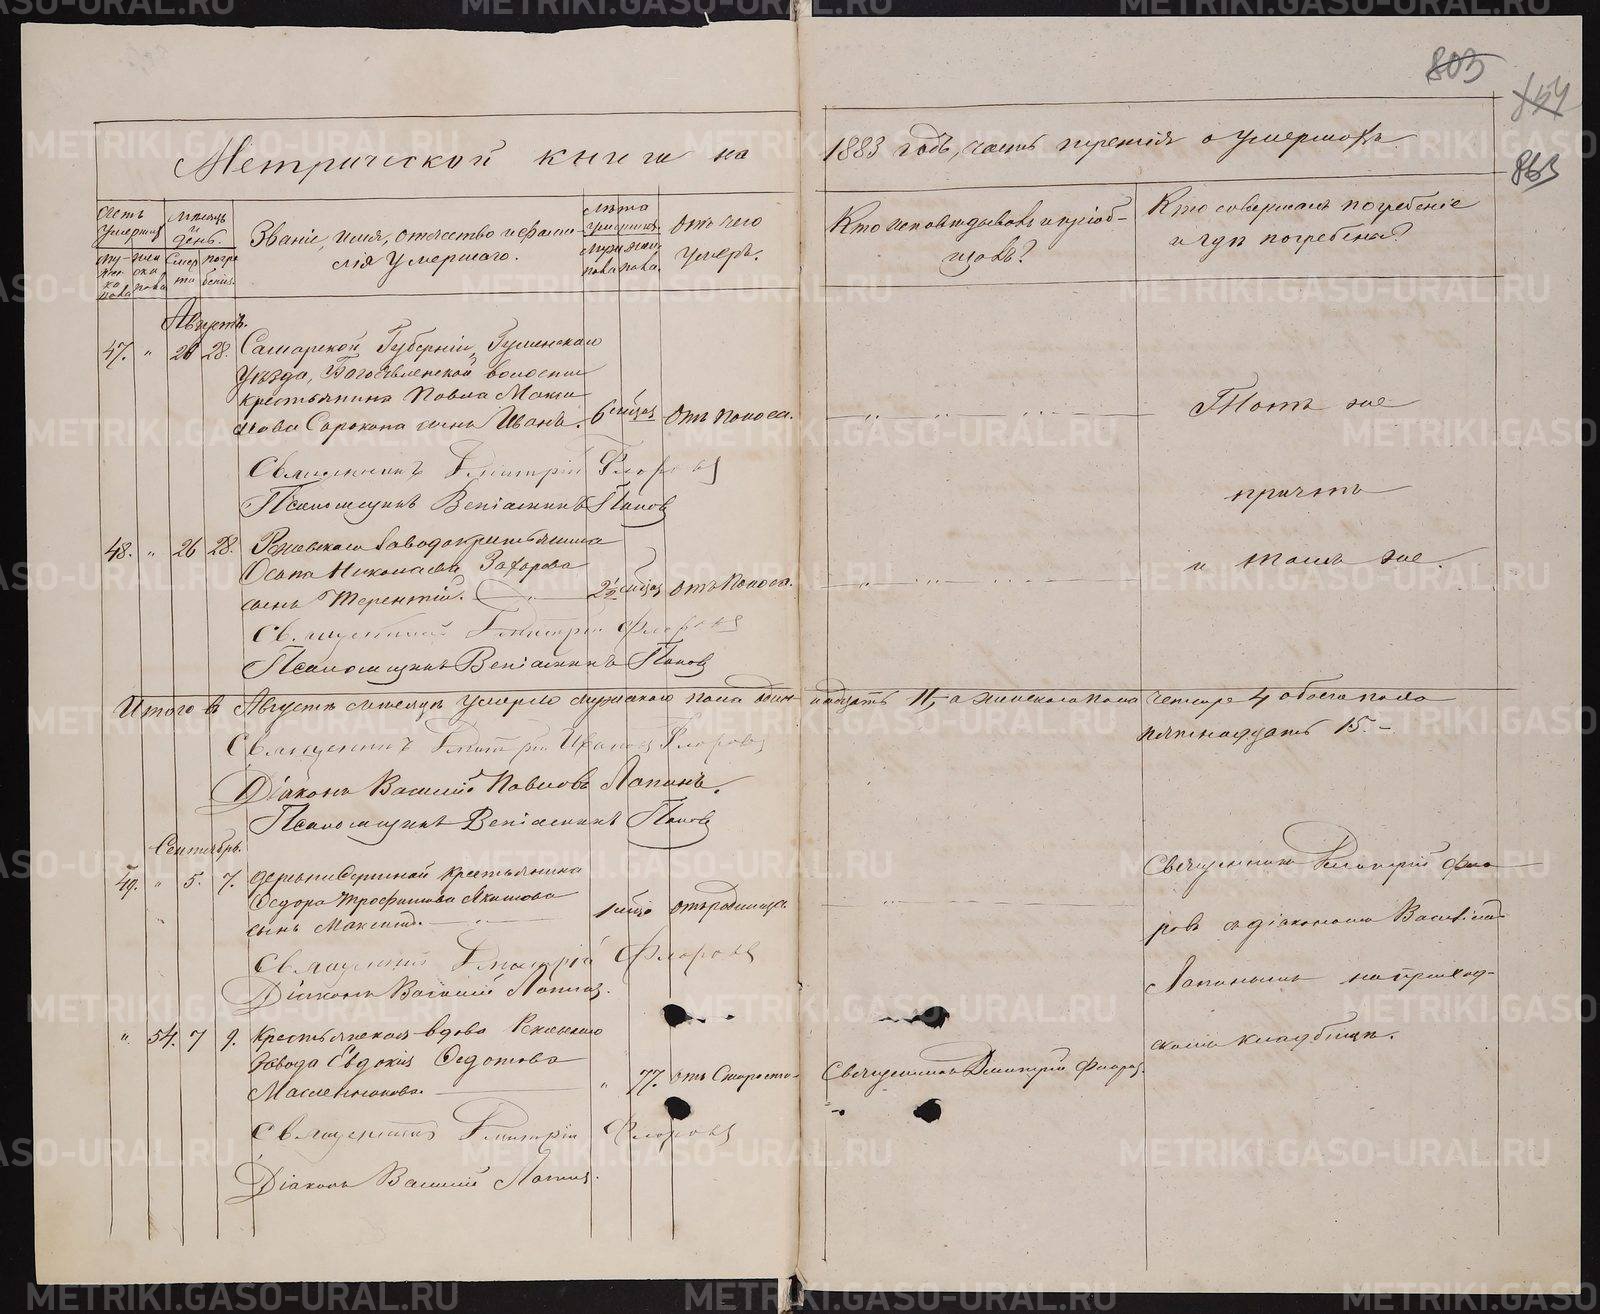 803
863
Метрической книги на 1883 годъ, часть третія о умершихъ
Счетъ умершихъ
Мѣсяцъ и день.
Званіе, имя, отчество и фамилія умершаго.
Лѣта умершихъ
Отъ чего умеръ.
Кто исповѣдывалъ и пріобщалъ?
Кто совершалъ погребеніе и гдѣ погребены?
Августъ.
47. " 26 28. Самарской Губерніи,
Уѣзда, Богоявленской волости
крестьянина Павла
сынъ Иванъ. 6 мѣсяц Отъ поноса. Тотъ же
Священникъ Дмитрій Флоровъ
Псаломщикъ Веніаминъ Поповъ
причтъ
48. " 26 28. Режевскаго завода крестьянина
Осипа Николаева Захарова
сынъ Терентій. 2½ мѣсяц отъ поноса. и тамъ же.
Священникъ Дмитрій Флоровъ
Псаломщикъ Веніаминъ Поповъ
Итого въ Августѣ мѣсяцѣ умерло мужскаго пола одиннадцать 11, а женскаго пола четыре 4 обоего пола
пятнадцать 15.
Священникъ Дмитрій Иванов Флоровъ
Діаконъ Василій Павловъ Лапинъ.
Псаломщикъ Веніаминъ Поповъ
Сентябрь.
49. " 5. 7. деревни крестьянина
Федора Трофимова Якимова
сынъ Максимъ. 1 мѣсяц отъ родимца
Священникъ Дмитрій Флоровъ съ діакономъ Василіемъ
Лапинымъ на приходскомъ кладбищѣ.
Священникъ Дмитрій Флоровъ
Діаконъ Василій Лапинъ.
" 54. 7 9. Крестьянская вдова Режевскаго
завода Евдокія Федотова
Масленникова. " 77. отъ старости Священникъ Дмитрій Флоровъ
Священникъ Дмитрій Флоровъ
Діаконъ Василій Лапинъ.
METRIKI.GASO-URAL.RU